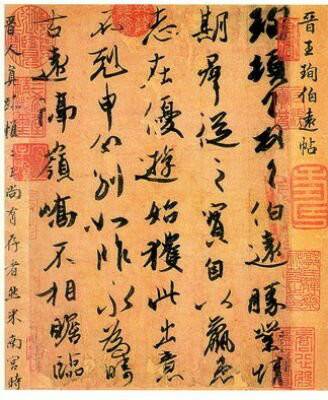 晋王珣伯遠帖
珣頓首頓首伯遠勝業情
期群從之寶自以羸患
志在優遊始獲此出意
不剋申分別如昨永為疇
古遠隔嶺嶠不相瞻臨
晋人真蹟惟二王尚有存者然米南宮時